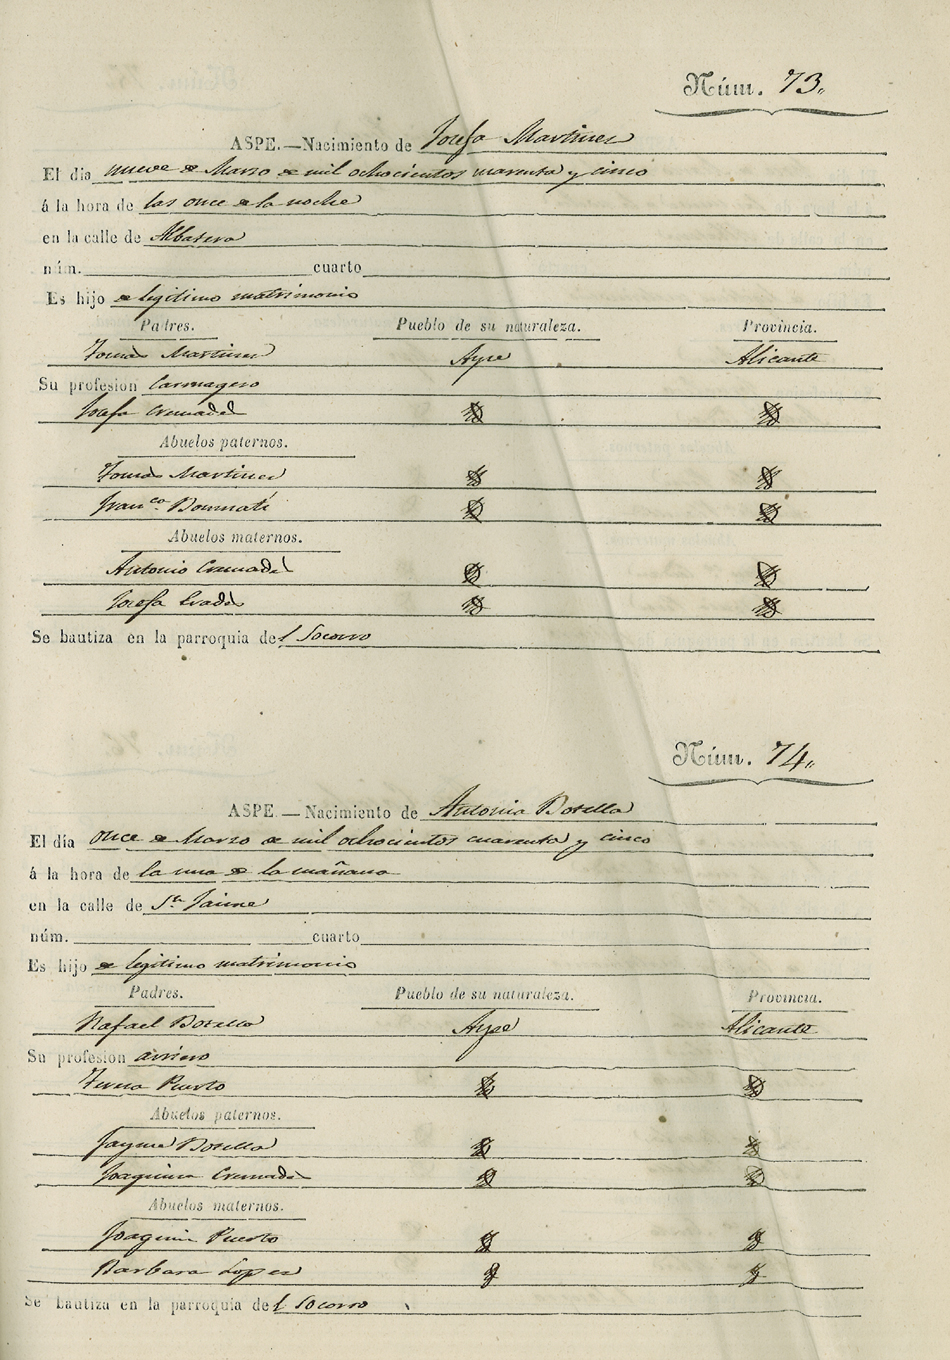 Núm. 73.
ASPE.—Nacimiento de Josefa Martinez
El día nueve de Marzo de mil ochocientos cuarenta y cinco
á la hora de las once de la noche
en la calle de Albatera
núm. cuarto
Es hijo de legitimo matrimonio
Padres. Pueblo de su naturaleza. Provincia.
Tomas Martinez Aspe Alicante
Su profesion
Josefa Cremades
Abuelos paternos.
Tomas Martinez
Franca. Bonmati
Abuelos maternos.
Antonio Cremades
Josefa
Se bautiza en la parroquia del Socorro
Núm. 74.
ASPE.—Nacimiento de Antonia Botella
El día once de Marzo de mil ochocientos cuarenta y cinco
á la hora de la una de la mañana
en la calle de Sn. Jaime
núm. cuarto
Es hijo de legitimo matrimonio
Padres. Pueblo de su naturaleza. Provincia.
Rafael Botella Aspe Alicante
Su profesion arriero
Teresa Puerto
Abuelos paternos.
Jayme Botella
Joaquina Cremades
Abuelos maternos.
Joaquin Puerto
Barbara Lopez
Se bautiza en la parroquia del Socorro